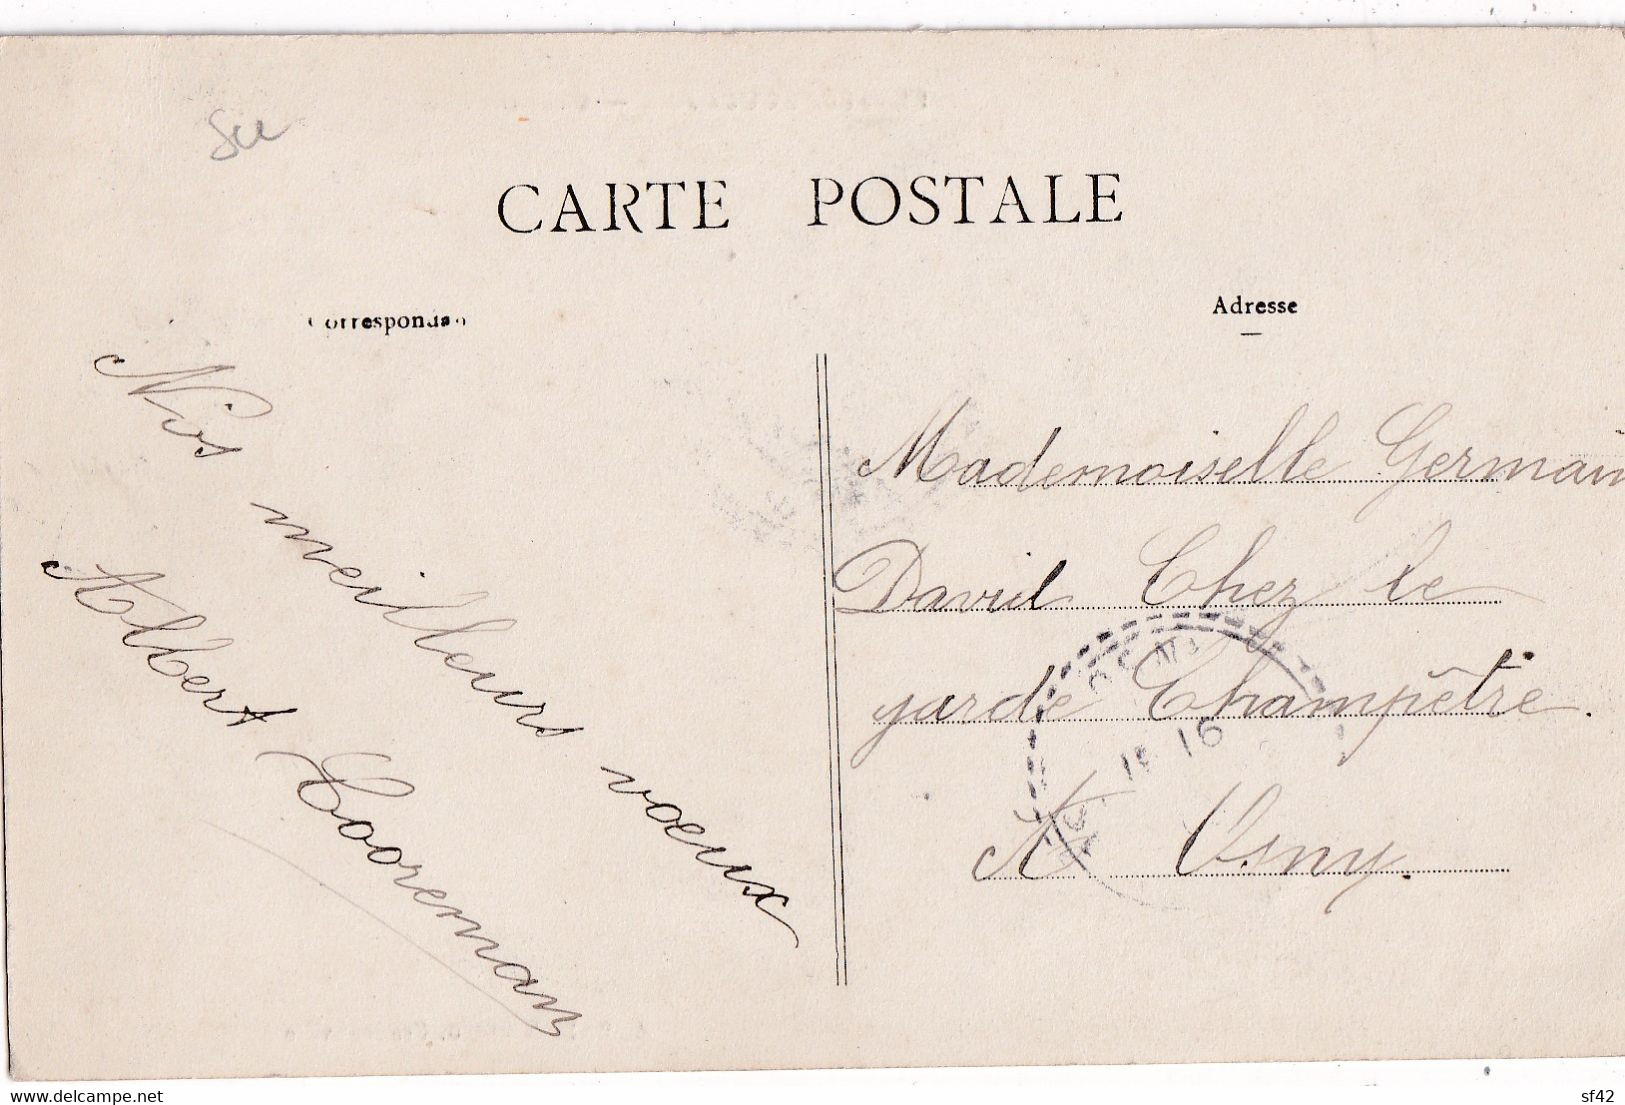 Su
CARTE POSTALE
Correspondan
Adresse
Nos meilleurs voeux
Albert Cooreman
Mademoiselle Germain
David Chez le
garde Champêtre.
A Osny.
16
delcampe.net
sf42